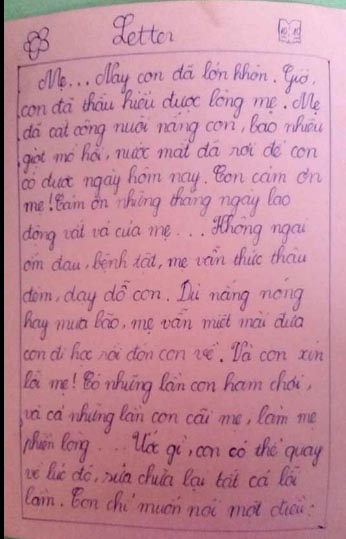 Letter
Mẹ... Nay con đã lớn khôn. Giờ,
con đã thấu hiểu được lòng mẹ. Mẹ
đã cất công nuôi nấng con, bao nhiêu
giọt mồ hôi, nước mắt đã rơi để con
có được ngày hôm nay. Con cảm ơn
mẹ! Cảm ơn những tháng ngày lao
động vất vả của mẹ... Không ngại
ốm đau, bệnh tật, mẹ vẫn thức thâu
đêm, dạy dỗ con. Dù nắng nóng
hay mưa bão, mẹ vẫn miệt mài đưa
con đi học rồi đón con về. Và con xin
lỗi mẹ! Có những lần con ham chơi,
và cả những lần con cãi mẹ, làm mẹ
phiền lòng... Ước gì, con có thể quay
về lúc đó, sửa chữa lại tất cả lỗi
lầm. Con chỉ muốn nói một điều: